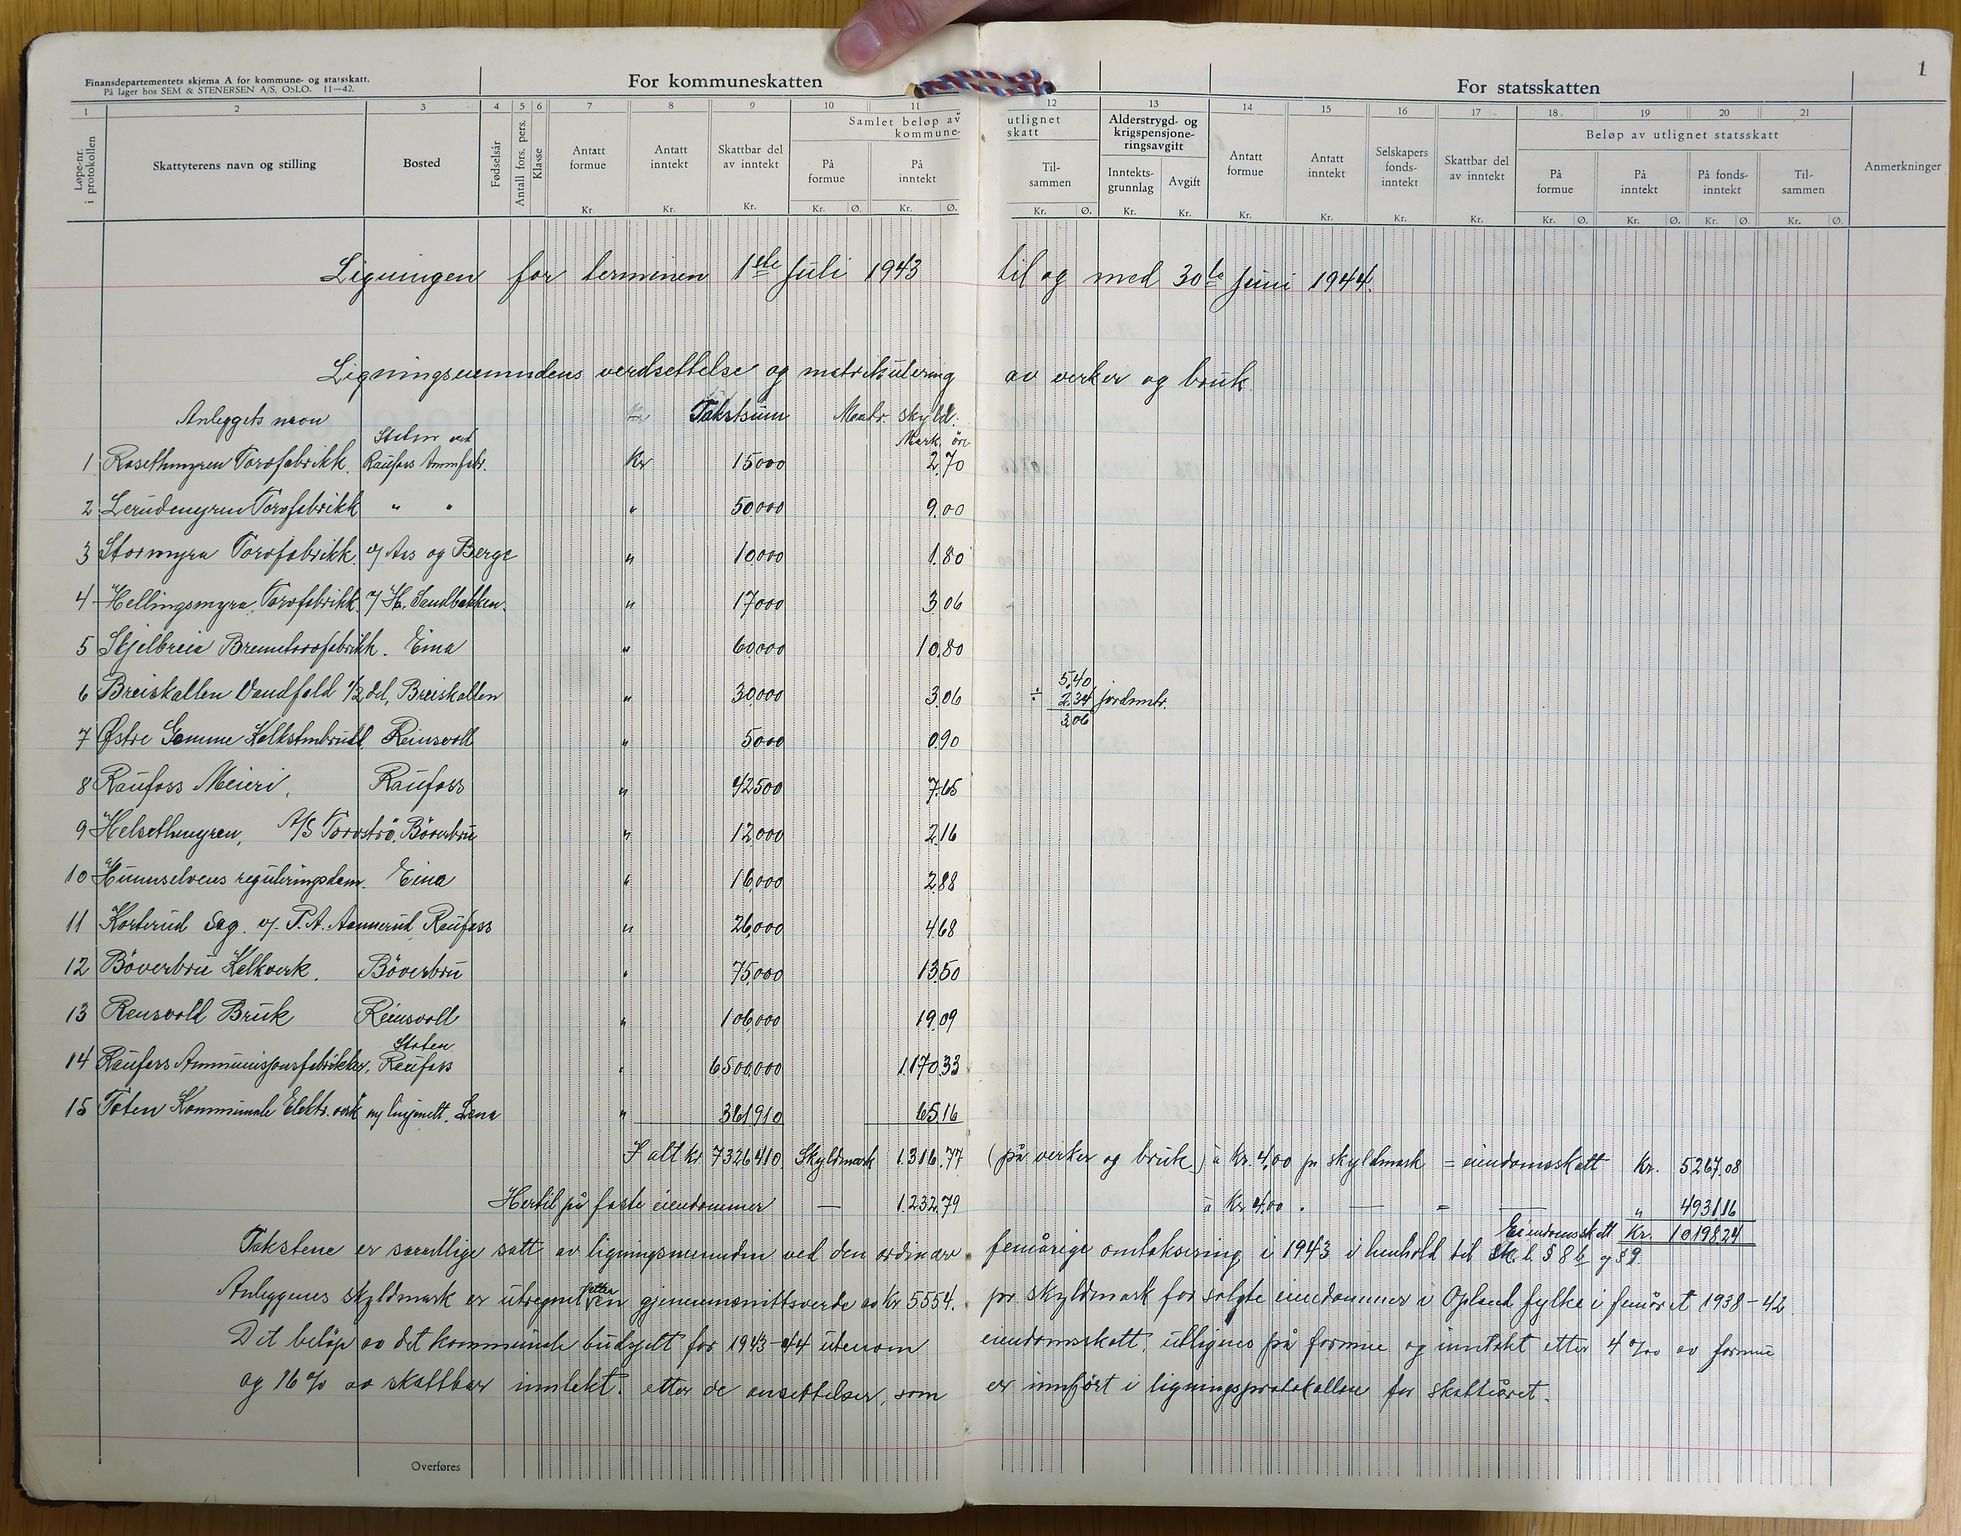 Finansdepartementets skjema A for kommune- og statsskatt.
På lager hos SEM & STENERSEN A/S, OSLO. 11—42.
For kommuneskatten
For statsskatten
1
1 2 3 4 5 6 7 8 9 10 11 12 13 14 15 16 17 18 19 20 21
Løpe-nr. i protokollen
Skattyterens navn og stilling
Bosted
Fødselsår
Antall fors. pers.
Klasse
Antatt formue Kr.
Antatt inntekt Kr.
Skattbar del av inntekt Kr.
Samlet beløp av utlignet kommune-skatt
På formue Kr. Ø.
På inntekt Kr. Ø.
Til-sammen Kr. Ø.
Alderstrygd- og krigspensjone-ringsavgift
Inntekts-grunnlag Kr.
Avgift Kr.
Antatt formue Kr.
Antatt inntekt Kr.
Selskapers fonds-inntekt Kr.
Skattbar del av inntekt Kr.
Beløp av utlignet statsskatt
På formue Kr. Ø.
På inntekt Kr. Ø.
På fonds-inntekt Kr. Ø.
Til-sammen Kr. Ø.
Anmerkninger
Ligningen for terminen 1ste Juli 1943 til og med 30te Juni 1944.
Ligningsnemndens verdsettelse og matrikulering av verker og bruk.
Anleggets navn Takstsum Matr. skyld.
Mark. öre
1 Rosethmyren Torvfabrikk. Staten ved Raufoss Ammfabr. Kr 15000 2.70
2 Lerudsmyren Torvfabrikk " " " 50000 9.00
3 Stormyra Torvfabrikk. v/ Aas og Berge " 10000 1.80
4 Hellingsmyra, Torvfabrikk. v/ H. Sandbakken. " 17000 3.06
5 Skjelbreia Brenntorvfabrikk. Eina " 60,000 10.80
6 Breiskallen Vandfald 1/2 del, Breiskallen " 30,000 3.06 ÷ 5.40 2.34 jordmtr. 3,06
7 Østre Gamme Kalkstenbrudd Reinsvoll " 5000 0.90
8 Raufoss Meieri, Raufoss " 42500 7.65
9 Helsethmyren, A/S Torvströ, Böverbru " 12,000 2.16
10 Hunnselvens reguleringsdam. Eina " 16,000 2.88
11 Korterud Sag. v/. P. A. Aannerud, Raufoss " 26,000 4.68
12 Böverbru Kalkverk. Böverbru " 75,000 13.50
13 Rensvold Bruk Reinsvoll " 106,000 19.09
14 Raufoss Ammunisjonsfabrikker, Staten Raufoss " 6,500,000 1.170.33
15 Toten Kommunale Elektr. verk og linjenett. Lena " 361910 65.16
I alt kr. 7326410 Skyldmark 1.316.77 (på verker og bruk) à Kr. 4,00 pr skyldmark = eiendomsskatt Kr. 5267.08
Hertil på faste eiendommer — 1.232.79 à Kr 4.00 " — = — " 4931.16
Eiendomsskatt Kr. 10198.24
Takstene er samtlige satt av ligningsnemnden ved den ordinære femårige omtaksering i 1943 i henhold til sk. l. § 8 b og § 9.
Anleggenes skyldmark er utregnet etter en gjennemsnittsverde av Kr 5554. pr. skyldmark for solgte eiendommer i Opland fylke i femåret 1938-42
Det beløp av det kommunale budsjett for 1943-44 utenom eiendomsskatt, utlignes på formue og inntekt etter 4 ‰ av formue
og 16 % av skattbar inntekt. etter de ansettelser, som er innført i ligningsprotokollen for skattåret.
Overføres